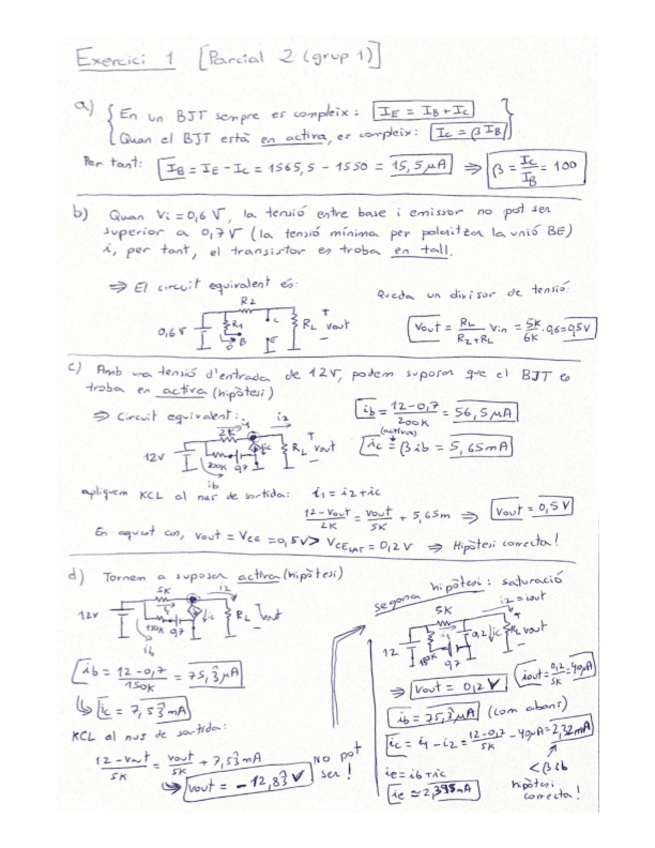 Exercici 1 [Parcial 2 (grup 1)]
a) En un BJT sempre es compleix: IE = IB + IC
Quan el BJT està en activa, es compleix: IC = βIB
Per tant: IB = IE - IC = 1565,5 - 1550 = 15,5 μA ⇒ β = IC/IB = 100
b) Quan Vi = 0,6 V, la tensió entre base i emissor no pot ser
superior a 0,7 V (la tensió mínima per polaritzar la unió BE)
i, per tant, el transistor es troba en tall.
⇒ El circuit equivalent és:
Queda un divisor de tensió:
R2
0,6 V R1 B C E RL + vout -
vout = RL/(R2+RL) vin = 5K/6K · 0,6 = 0,5 V
c) Amb una tensió d'entrada de 12V, podem suposar que el BJT es
troba en activa (hipòtesi)
⇒ Circuit equivalent:
2K i1 i2
12V 200K 0,7 ib ic RL + vout -
ib = (12-0,7)/200K = 56,5 μA
(activa)
ic = βib = 5,65 mA
apliquem KCL al nus de sortida: i1 = i2 + ic
(12-vout)/2K = vout/5K + 5,65m ⇒ vout = 0,5 V
En aquest cas, vout = VCE = 0,5V > VCEsat = 0,2 V ⇒ Hipòtesi correcta!
d) Tornem a suposar activa (hipòtesi)
5K i2
12V i1 150K 0,7 ib ic RL vout
ib = (12-0,7)/150K = 75,3 μA
ic = 7,53 mA
KCL al nus de sortida:
(12-vout)/5K = vout/5K + 7,53 mA
vout = -12,83 V
No pot
ser!
segona hipòtesi: saturació
5K i2 = iout
12 i1 0,2 ic RL vout
150K 0,7
⇒ vout = 0,2 V
iout = 0,2/5K = 40μA
ib = 75,3 μA (com abans)
ic = i1 - i2 = (12-0,2)/5K - 40μA = 2,32 mA
< βib
ie = ib + ic
hipòtesi
correcta!
ie ≃ 2,395 mA